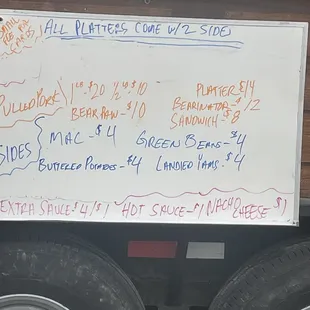 ALL PLATTERS COME W/2 SIDES
PULLED PORK
1LB-$20 1/2LB $10
BEAR PAW-$10
PLATTER $14
BEARINATOR-$12
SANDWICH-$8
SIDES
MAC-$4
GREEN BEANS-$4
BUTTERED POTATOES-$4
CANDIED YAMS-$4
EXTRA SAUCE-$4/$1
HOT SAUCE-$1
NACHO CHEESE $1